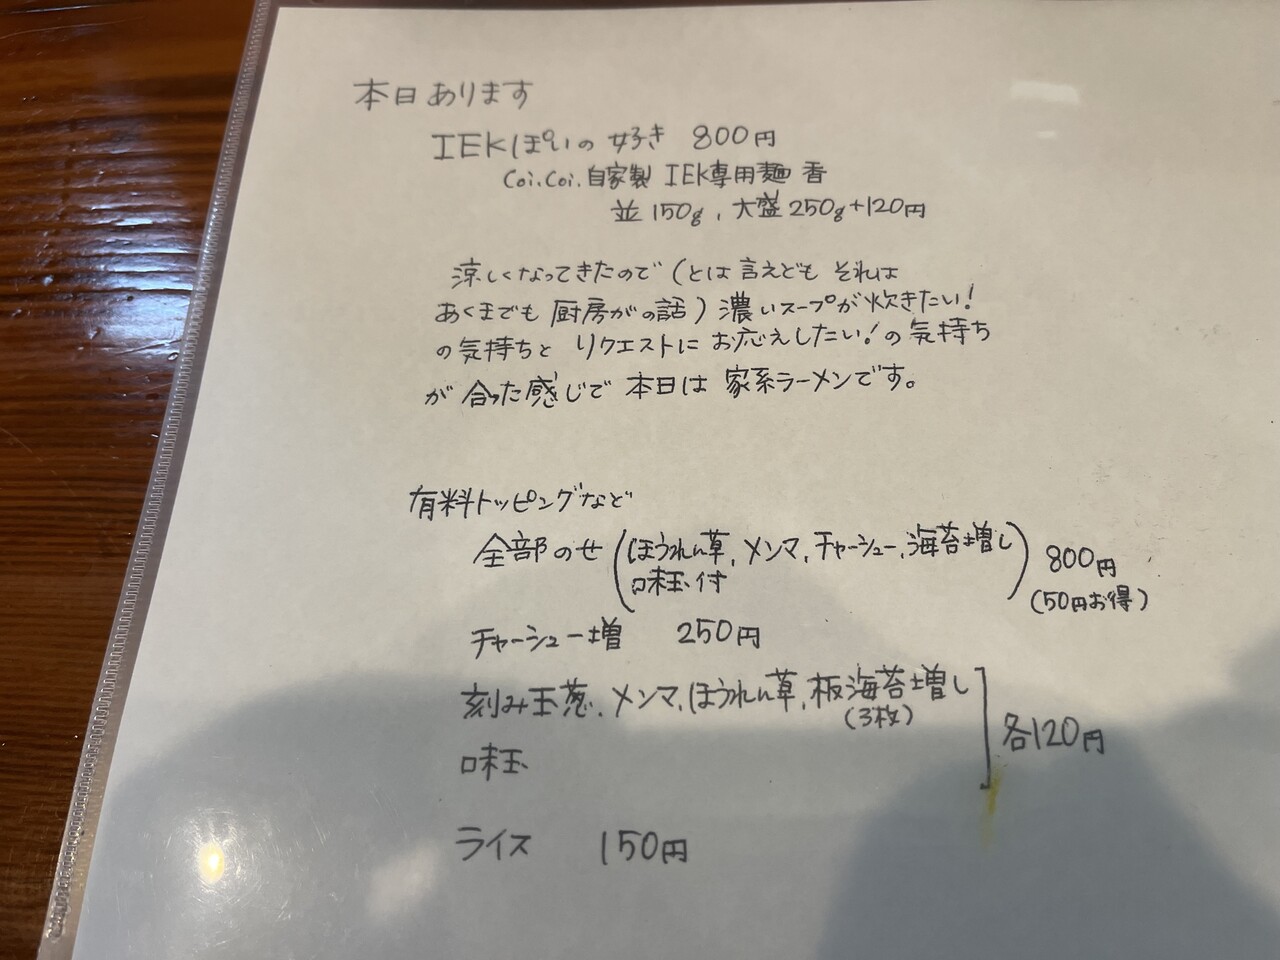 本日あります
IEKぽいの好き 800円
Coi.Coi.自家製 IEK専用麺 香
並150g、大盛250g+120円
涼しくなってきたので(とは言えども それは
あくまでも 厨房がの話)濃いスープが炊きたい!
の気持ちと リクエストに お応えしたい!の気持ち
が 合った感じで 本日は 家系ラーメンです。
有料トッピングなど
全部のせ(ほうれん草、メンマ、チャーシュー、海苔増し 味玉付) 800円
(50円お得)
チャーシュー増 250円
刻み玉葱、メンマ、ほうれん草、板海苔増し
(3枚)
味玉
各120円
ライス 150円